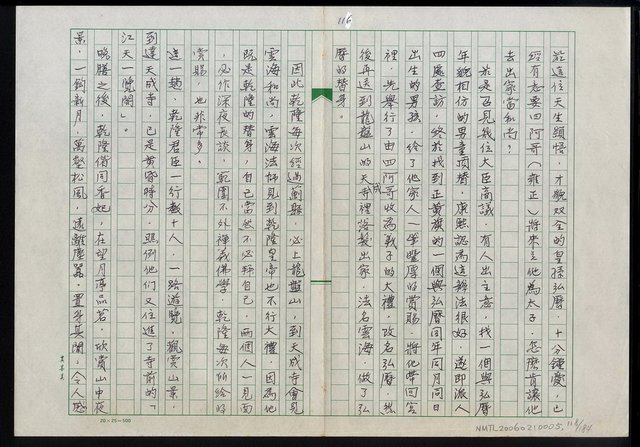 116
於這位天生穎悟、才貌双全的皇孫弘曆，十分鍾愛，已
經有意要四阿哥（雍正）將來立他為太子，怎麼肯讓他
去出家當和尚？
於是召見幾位大臣商議，有人出主意，找一個與弘曆
年貌相仿的男童頂替，康熙認為這辦法很好，遂即派人
四處查訪，終於找到正黃旗的一個與弘曆同年同月同日
出生的男孩，給了他家人一筆豐厚的賞賜，將他帶回宮
裡，先舉行了由四阿哥收為義子的大禮，改名弘曆，然
後再送到龍盤山的天成寺裡落髮出家，法名雲海，做了弘
曆的替身。
因此乾隆每次經過薊縣，必上龍盤山，到天成寺會見
雲海和尚，雲海法師見到乾隆皇帝也不行大禮，因為他
既是乾隆的替身，自己當然不必拜自己，兩個人一見面
，必作深夜長談，範圍不外禪義佛學，乾隆每次所給的
賞賜，也非常多。
這一趟，乾隆君臣一行數十人，一路遊覽，觀賞山景，
到達天成寺，已是黃昏時分，照例他們又住進了寺前的「
江天一覽閣」。
晚膳之後，乾隆偕同香妃，在望月亭品茗，欣賞山中夜
景，一鈎新月，萬壑松風，遠離塵囂，置身其間，令人感
20×25=500
NMTL20060210005, 118/184